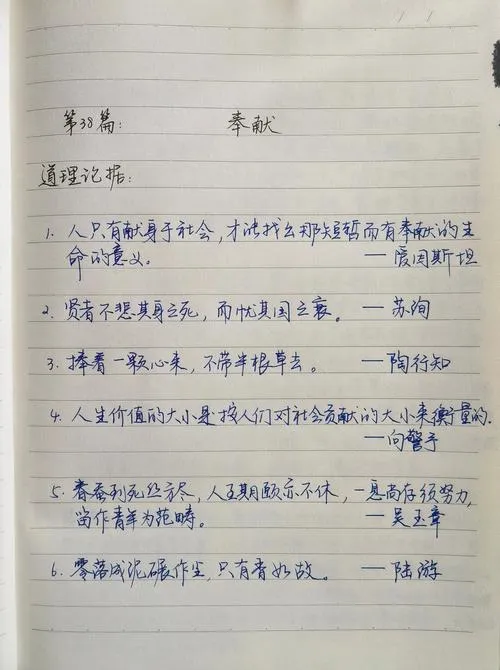 第38篇： 奉献
道理论据：
1. 人只有献身于社会，才能找出那短暂而有奉献的生
命的意义。 —爱因斯坦
2. 贤者不悲其身之死，而忧其国之衰。 —苏洵
3. 捧着一颗心来，不带半根草去。 —陶行知
4. 人生价值的大小是按人们对社会贡献的大小来衡量的.
—向警予
5. 春蚕到死丝方尽，人至期颐亦不休，一息尚存须努力，
留作青年为范畴。 —吴玉章
6. 零落成泥碾作尘，只有香如故。 —陆游